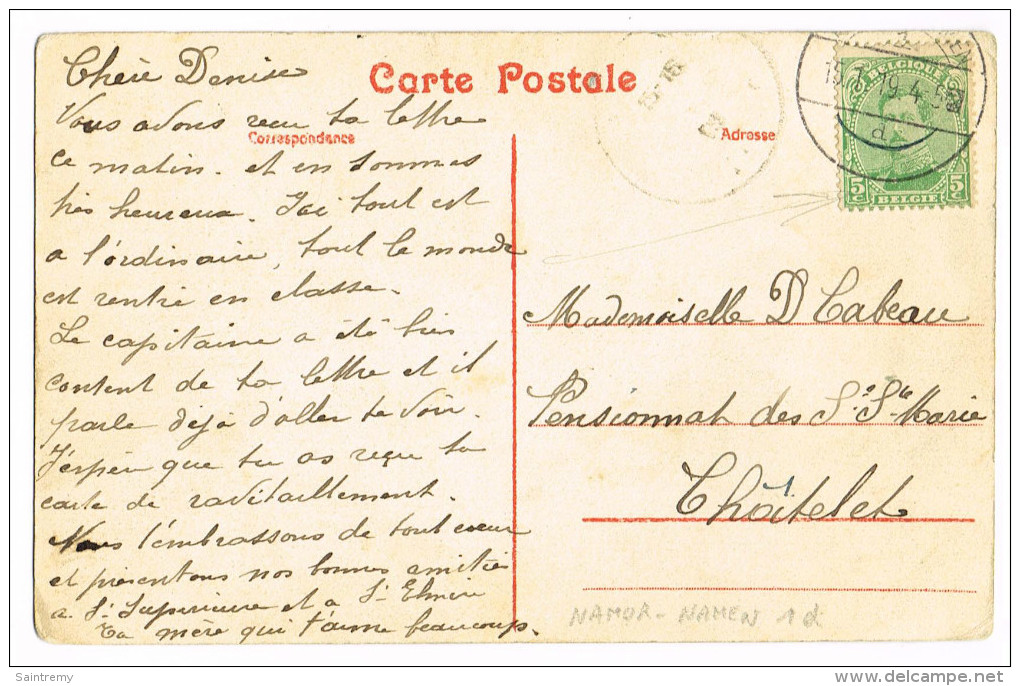 Carte Postale
Correspondance
Adresse
Chère Denise
Vous avons reçu ta lettre
ce matin. et en sommes
très heureux. Ici tout est
a l'ordinaire, tout le monde
est rentré en classe.
Le capitaine a été bien
content de ta lettre et il
parle déjà d'aller te voir.
J'espère que tu as reçu ta
carte de ravitaillement.
Nous t'embrassons de tout coeur
et présentons nos bonnes amitiés
a Sr Supérieure et a Sr Elmire
Ta mère qui t'aime beaucoup.
BELGIQUE
5c 5c
BELGIE
15-16
Mademoiselle D Cabeau
Pensionnat des Srs Ste Marie
Châtelet
NAMUR - NAMEN 1 d
Saintremy
delcampe.net